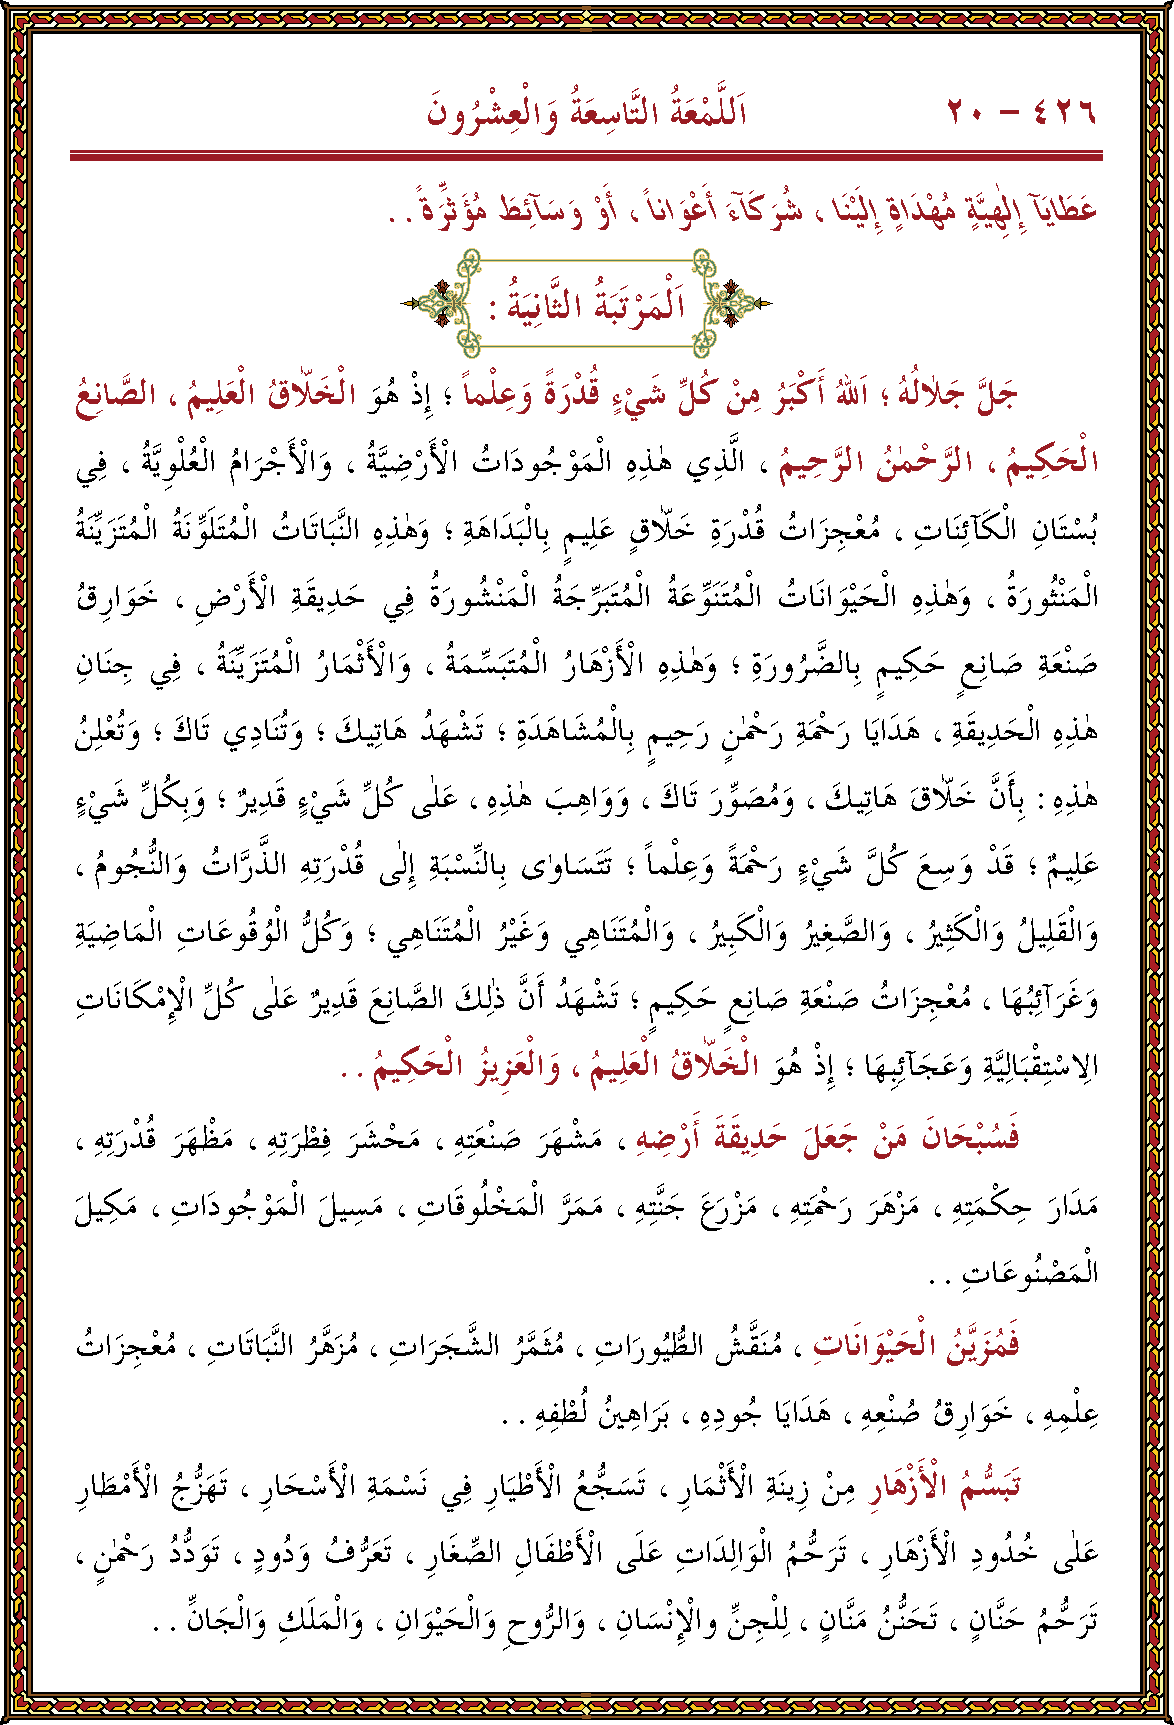 ٤٢٦ - ٢٠ اَللَّمْعَةُ التَّاسِعَةُ وَالْعِشْرُونَ
عَطَايَآ إِلٰهِيَّةٍ مُهْدَاةٍ إِلَيْنَا ، شُرَكَآءَ أَعْوَاناً ، أَوْ وَسَآئِطَ مُؤَثِّرَةً . .
اَلْمَرْتَبَةُ الثَّانِيَةُ :
جَلَّ جَلَالُهُ ؛ اَللهُ أَكْبَرُ مِنْ كُلِّ شَيْءٍ قُدْرَةً وَعِلْماً ؛ إِذْ هُوَ الْخَلَّاقُ الْعَلِيمُ ، الصَّانِعُ
الْحَكِيمُ ، الرَّحْمٰنُ الرَّحِيمُ ، الَّذِي هٰذِهِ الْمَوْجُودَاتُ الْأَرْضِيَّةُ ، وَالْأَجْرَامُ الْعُلْوِيَّةُ ، فِي
بُسْتَانِ الْكَآئِنَاتِ ، مُعْجِزَاتُ قُدْرَةِ خَلَّاقٍ عَلِيمٍ بِالْبَدَاهَةِ ؛ وَهٰذِهِ النَّبَاتَاتُ الْمُتَلَوِّنَةُ الْمُتَزَيِّنَةُ
الْمَنْثُورَةُ ، وَهٰذِهِ الْحَيْوَانَاتُ الْمُتَنَوِّعَةُ الْمُتَبَرِّجَةُ الْمَنْشُورَةُ فِي حَدِيقَةِ الْأَرْضِ ، خَوَارِقُ
صَنْعَةِ صَانِعٍ حَكِيمٍ بِالضَّرُورَةِ ؛ وَهٰذِهِ الْأَزْهَارُ الْمُتَبَسِّمَةُ ، وَالْأَثْمَارُ الْمُتَزَيِّنَةُ ، فِي جِنَانِ
هٰذِهِ الْحَدِيقَةِ ، هَدَايَا رَحْمَةِ رَحْمٰنٍ رَحِيمٍ بِالْمُشَاهَدَةِ ؛ تَشْهَدُ هَاتِيكَ ؛ وَتُنَادِي تَاكَ ؛ وَتُعْلِنُ
هٰذِهِ : بِأَنَّ خَلَّاقَ هَاتِيكَ ، وَمُصَوِّرَ تَاكَ ، وَوَاهِبَ هٰذِهِ ، عَلٰى كُلِّ شَيْءٍ قَدِيرٌ ؛ وَبِكُلِّ شَيْءٍ
عَلِيمٌ ؛ قَدْ وَسِعَ كُلَّ شَيْءٍ رَحْمَةً وَعِلْماً ؛ تَتَسَاوٰى بِالنِّسْبَةِ إِلٰى قُدْرَتِهِ الذَّرَّاتُ وَالنُّجُومُ ،
وَالْقَلِيلُ وَالْكَثِيرُ ، وَالصَّغِيرُ وَالْكَبِيرُ ، وَالْمُتَنَاهِي وَغَيْرُ الْمُتَنَاهِي ؛ وَكُلُّ الْوُقُوعَاتِ الْمَاضِيَةِ
وَغَرَآئِبُهَا ، مُعْجِزَاتُ صَنْعَةِ صَانِعٍ حَكِيمٍ ؛ تَشْهَدُ أَنَّ ذٰلِكَ الصَّانِعَ قَدِيرٌ عَلٰى كُلِّ الْإِمْكَانَاتِ
الِاسْتِقْبَالِيَّةِ وَعَجَآئِبِهَا ؛ إِذْ هُوَ الْخَلَّاقُ الْعَلِيمُ ، وَالْعَزِيزُ الْحَكِيمُ . .
فَسُبْحَانَ مَنْ جَعَلَ حَدِيقَةَ أَرْضِهِ ، مَشْهَرَ صَنْعَتِهِ ، مَحْشَرَ فِطْرَتِهِ ، مَظْهَرَ قُدْرَتِهِ ،
مَدَارَ حِكْمَتِهِ ، مَزْهَرَ رَحْمَتِهِ ، مَزْرَعَ جَنَّتِهِ ، مَمَرَّ الْمَخْلُوقَاتِ ، مَسِيلَ الْمَوْجُودَاتِ ، مَكِيلَ
الْمَصْنُوعَاتِ . .
فَمُزَيَّنُ الْحَيْوَانَاتِ ، مُنَقَّشُ الطُّيُورَاتِ ، مُثَمَّرُ الشَّجَرَاتِ ، مُزَهَّرُ النَّبَاتَاتِ ، مُعْجِزَاتُ
عِلْمِهِ ، خَوَارِقُ صُنْعِهِ ، هَدَايَا جُودِهِ ، بَرَاهِينُ لُطْفِهِ . .
تَبَسُّمُ الْأَزْهَارِ مِنْ زِينَةِ الْأَثْمَارِ ، تَسَجُّعُ الْأَطْيَارِ فِي نَسْمَةِ الْأَسْحَارِ ، تَهَزُّجُ الْأَمْطَارِ
عَلٰى خُدُودِ الْأَزْهَارِ ، تَرَحُّمُ الْوَالِدَاتِ عَلَى الْأَطْفَالِ الصِّغَارِ ، تَعَرُّفُ وَدُودٍ ، تَوَدُّدُ رَحْمٰنٍ ،
تَرَحُّمُ حَنَّانٍ ، تَحَنُّنُ مَنَّانٍ ، لِلْجِنِّ والْإِنْسَانِ ، وَالرُّوحِ وَالْحَيْوَانِ ، وَالْمَلَكِ وَالْجَانِّ . .